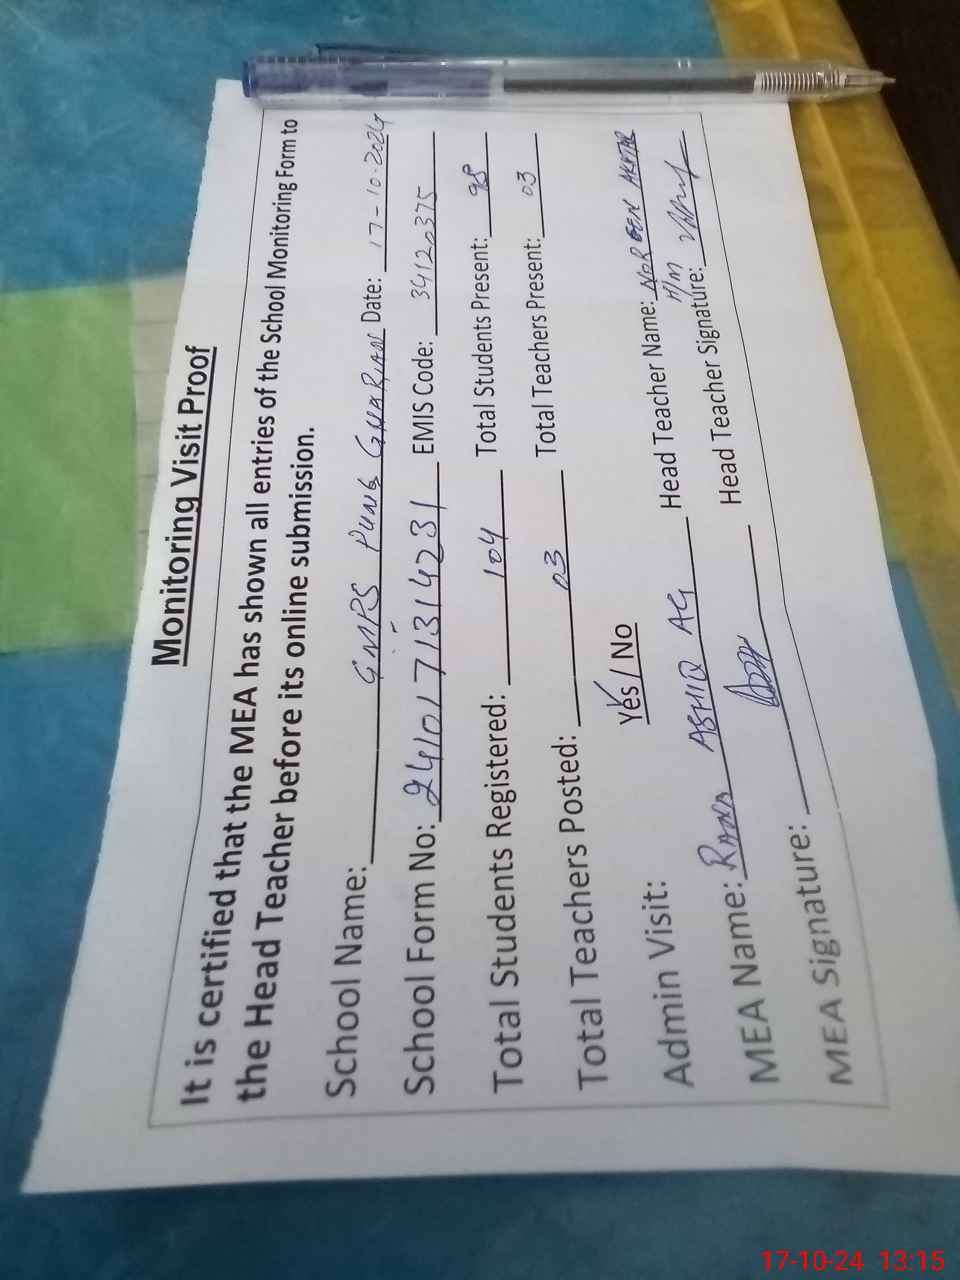 Monitoring Visit Proof
It is certified that the MEA has shown all entries of the School Monitoring Form to
the Head Teacher before its online submission.
School Name: GMPS PUNG GHARIANI Date: 17-10-2024
School Form No: 2410171314231 EMIS Code: 34120375
Total Students Registered: 104 Total Students Present: 98
Total Teachers Posted: 03 Total Teachers Present: 03
Admin Visit: Yes / No
MEA Name: RANA ASHIQ AG Head Teacher Name: AKHTAR
H/M
MEA Signature: Head Teacher Signature:
17-10-24 13:15